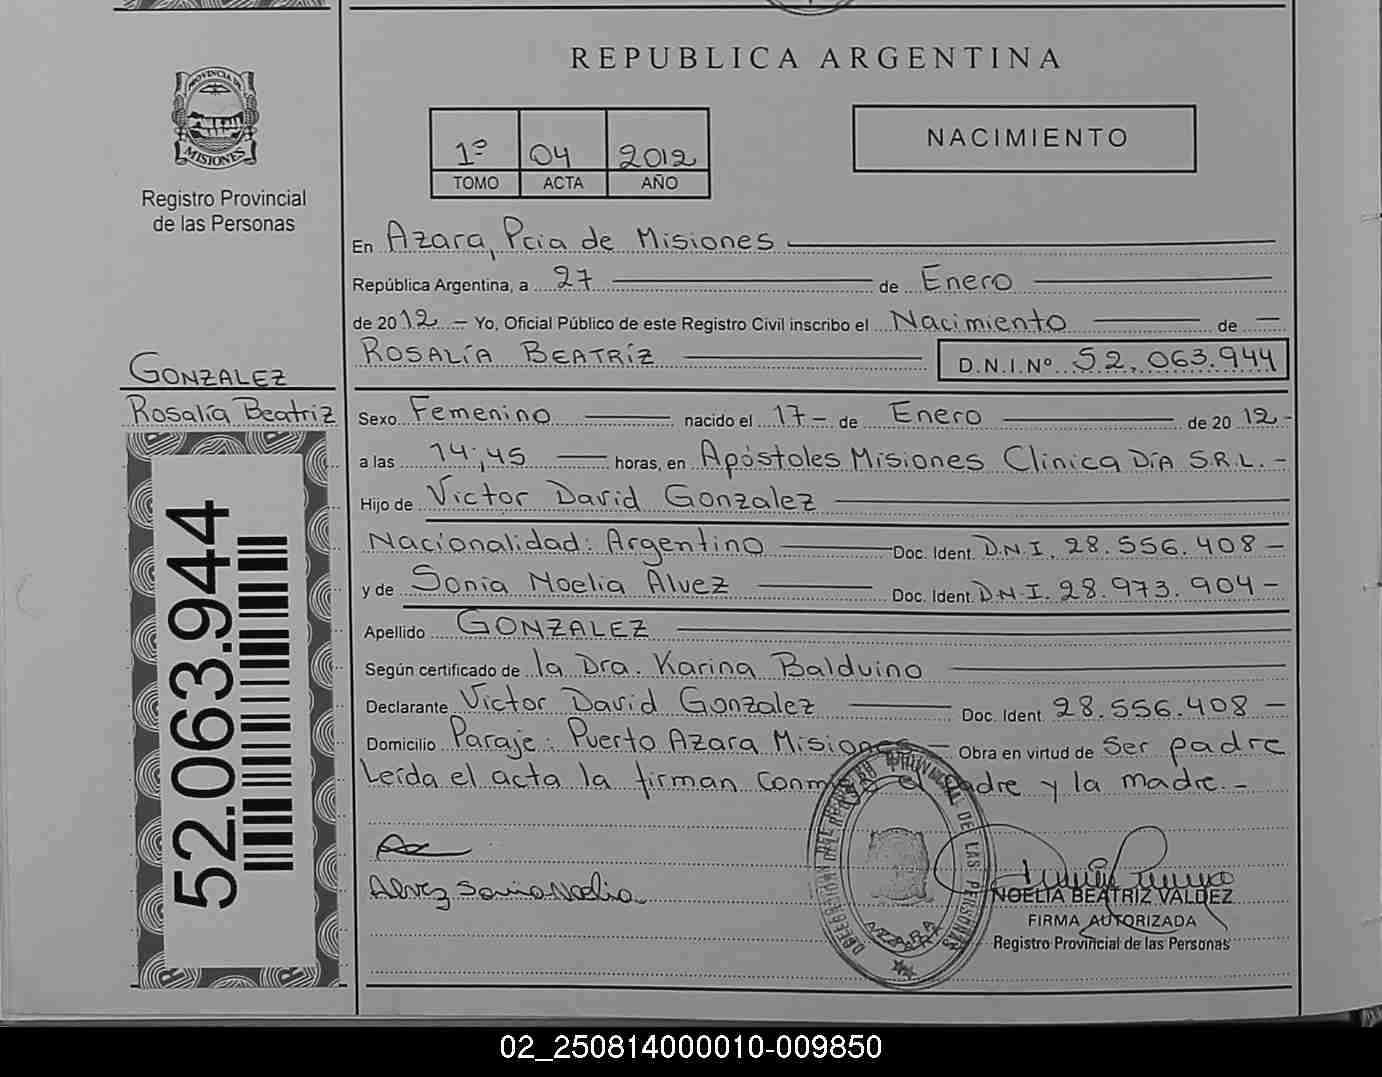 REPUBLICA ARGENTINA
PROVINCIA DE
MISIONES
Registro Provincial
de las Personas
1º 04 2012
TOMO ACTA AÑO
NACIMIENTO
En Azara, Pcia de Misiones
República Argentina, a 27 de Enero
de 2012 - Yo, Oficial Público de este Registro Civil inscribo el Nacimiento de
ROSALÍA BEATRÍZ D.N.I.Nº 52.063.944
GONZALEZ
Rosalía Beatriz
52.063.944
Sexo Femenino nacido el 17 - de Enero de 2012 -
a las 14,45 horas, en Apóstoles Misiones Clinica Día S.R.L. -
Hijo de Victor David Gonzalez
Nacionalidad: Argentino Doc. Ident. D.N.I. 28.556.408 -
y de Sonia Noelia Alvez Doc. Ident. D.N.I. 28.973.904 -
Apellido GONZALEZ
Según certificado de la Dra. Karina Balduino
Declarante Victor David Gonzalez Doc. Ident. 28.556.408 -
Domicilio Paraje: Puerto Azara Misiones - Obra en virtud de ser padre
Leída el acta la firman conmigo el padre y la madre. -
Alvez Sonia Noelia
AZARA
NOELIA BEATRIZ VALDEZ
FIRMA AUTORIZADA
Registro Provincial de las Personas
02_250814000010-009850